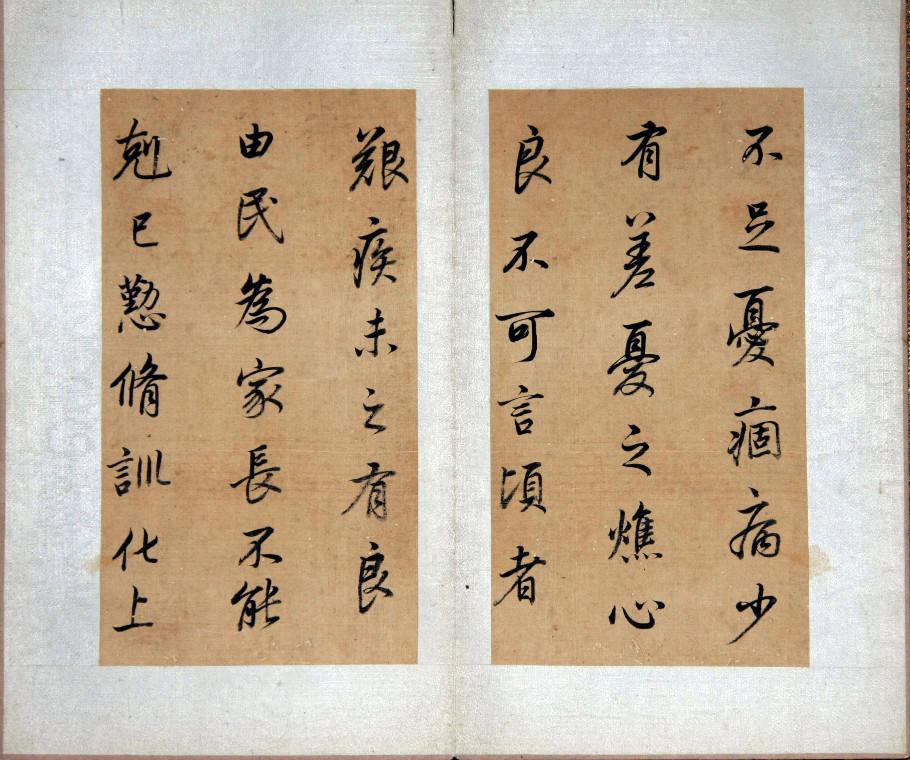 不足憂痼病少
有差憂之燋心
良不可言頃者
艱疾未之有良
由民為家長不能
剋己懃脩訓化上